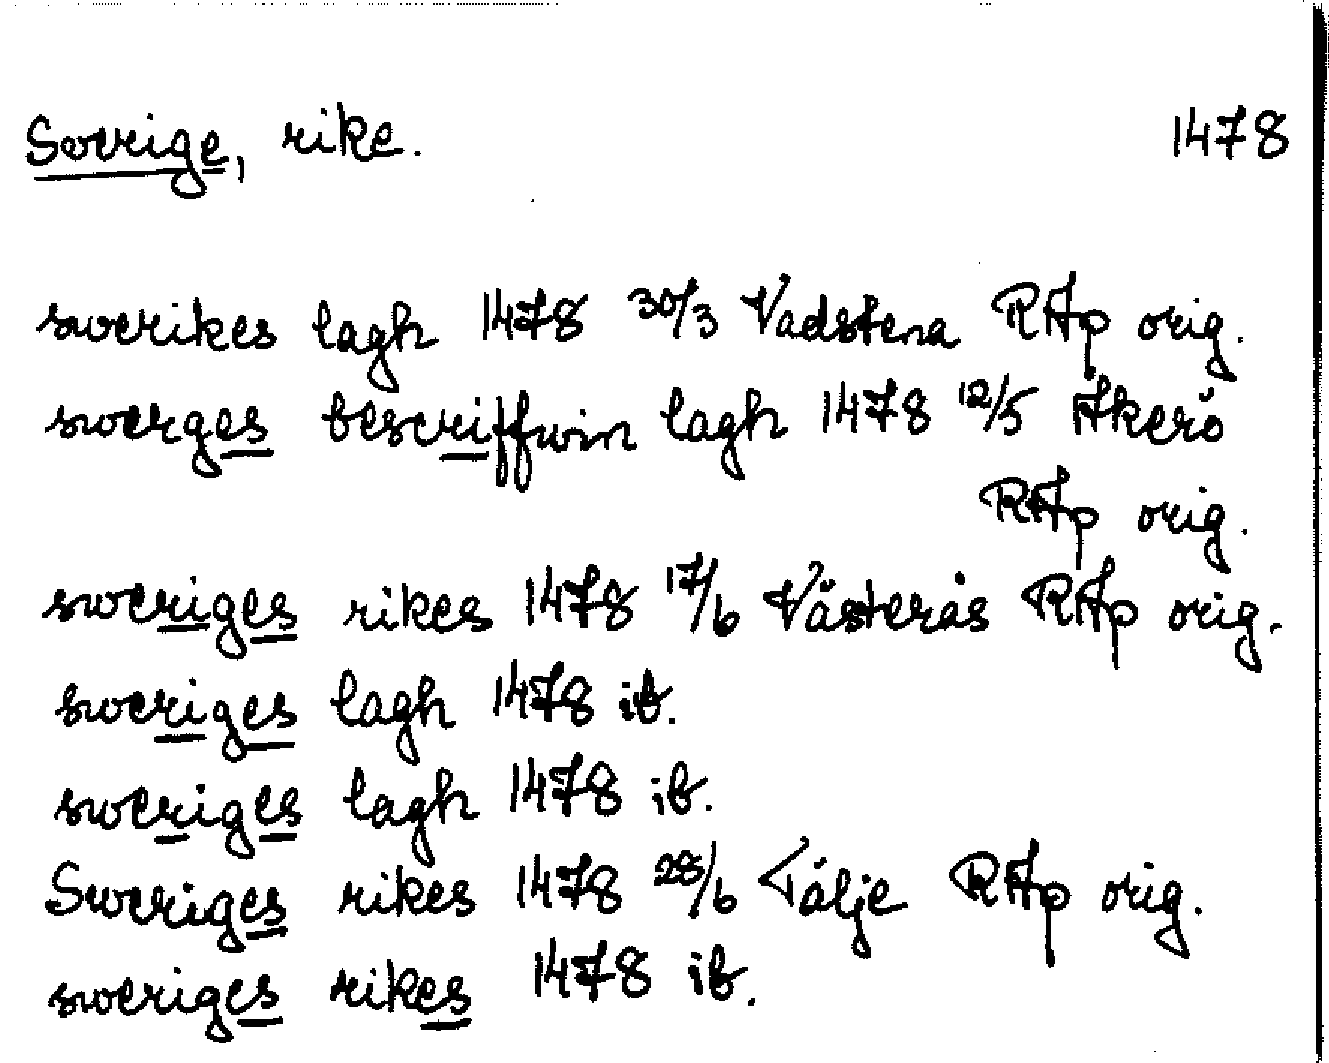 Sverige, rike. 1478
swerikes lagh 1478 30/3 Vadstena RAp orig.
swerges bescriffwin lagh 1478 12/5 Åkerö
RAp orig.
sweriges rikes 1478 17/6 Västerås RAp orig.
sweriges lagh 1478 ib.
sweriges lagh 1478 ib.
Sweriges rikes 1478 28/6 Tälje RAp orig.
sweriges rikes 1478 ib.